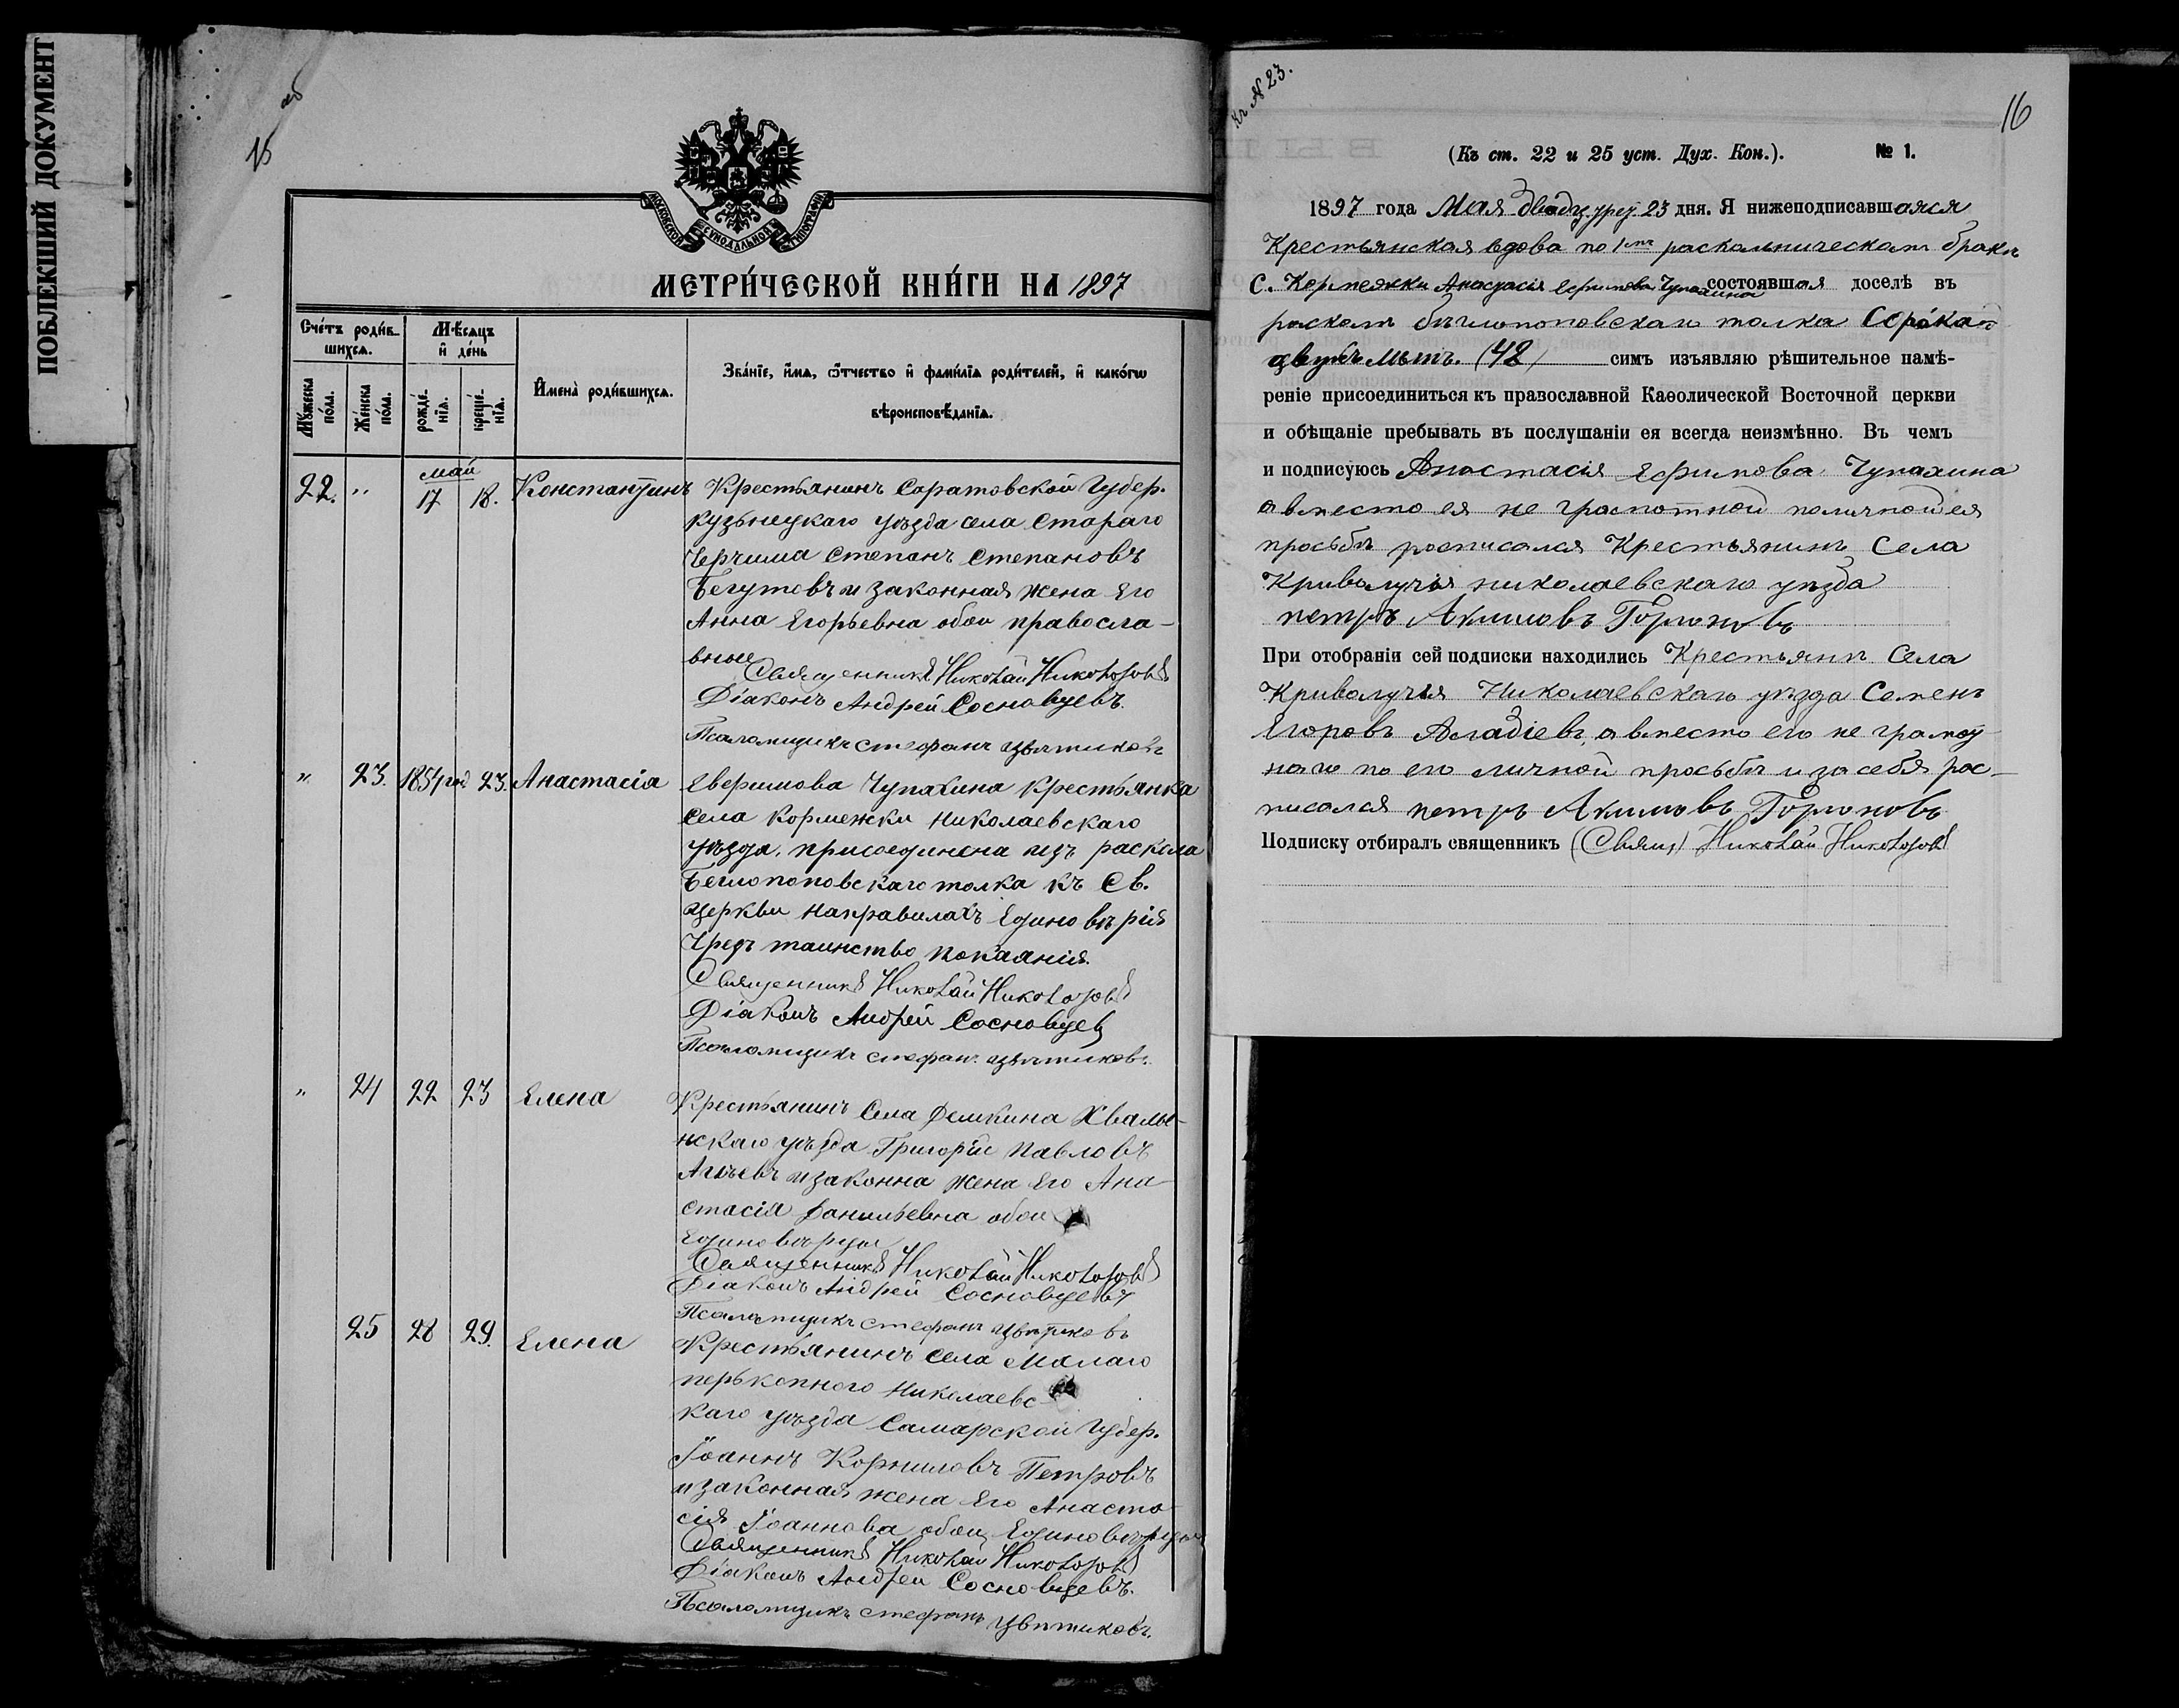 ПОБЛЕКШИЙ ДОКУМЕНТ
15 об
МОСКОВСКОЙ СѴНОДАЛЬНОЙ ТИПОГРАФІИ
МЕТРИ́ЧЕСКОЙ КНИ́ГИ НА 1897
Сче́тъ роди́в-
шихсѧ.
Мѣ́сѧцъ
и҆ де́нь
Мꙋ́жеска
по́ла.
Же́нска
по́ла.
рожде́-
нїѧ.
креще́-
нїѧ.
И҆мена̀ роди́вшихсѧ.
Зва́нїе, и҆́мѧ, ѻ҆́тчество и҆ фами́лїѧ роди́телей, и҆ како́гѡ
вѣроисповѣ́данїѧ.
май
22. " 17 18. Константинъ Крестьянинъ Саратовской Губер.
кузьнецкаго уѣзда села Стараго
Чирчима Степанъ Степановъ
Бегутовъ и законная жена Его
Анна Егорьевна обои правосла-
вные
Священникъ Николай Никольсовъ
Діаконъ Андрей Сосновцевъ.
Псаломщикъ стефанъ цвѣтиковъ
" 23. 1854 год 23. Анастасія Евфимова Чупахина крестьянка
села Кормежки Николаевскаго
уѣзда, присоединена изъ раскола
Беглопоповскаго толка къ Св.
церкви направилахъ Единовѣрія
Чрезъ таинство покаянія.
Священникъ Николай
Діаконъ Андрей Сосновцевъ
Псаломщикъ стефанъ цвѣтиковъ.
" 24 22 23 Елена Крестьянинъ Села Демкина Хвалы-
нскаго уѣзда Григорій Павловъ
Агѣевъ и законна жена Его Ана-
стасія Данильевна обои
Единовѣрцы
Священникъ Николай
Діаконъ Андрей Сосновцевъ
Псаломщикъ стефанъ цвѣтиковъ
25 28 29. Елена Крестьянинъ села Малаго
перькопного Николаевс
каго уѣзда Самарской Губер.
Іоаннъ Корниловъ Петровъ
и законная жена Его Анаста-
сія Іоаннова обои Единовѣрцы
Священникъ Николай
Діаконъ Андрей Сосновцевъ.
Псаломщикъ стефанъ цвѣтиковъ.
Къ № 23.
16
(Къ ст. 22 и 25 уст. Дух. Кон.). № 1.
1897 года Мая двадц. трет. 23 дня. Я нижеподписавшаяся
Крестьянская вдова по 1му раскольническому браку
С. Кормежки Анастасія Ефимова Чупахина состоявшая доселѣ въ
расколѣ бѣглопоповскаго толка Сорока
двухъ лѣтъ. (42) симъ изъявляю рѣшительное намѣ-
реніе присоединиться къ православной Каѳолической Восточной церкви
и обѣщаніе пребывать въ послушаніи ея всегда неизмѣнно. Въ чемъ
и подписуюсь Анастасія Ефимова Чупахина
а вместо ея не грамотной по личной ея
просьбѣ росписался Крестьянинъ Села
Криволучія николаевскаго уѣзда
петръ Акимовъ Горюновъ
При отобраніи сей подписки находились Крестьянин Села
Криволучія Николаевскаго уѣзда Семенъ
Егоровъ Аладіевъ, а вместо его не грамот-
наго по его личной просьбѣ и за себя рос-
писался петръ Акимовъ Горюновъ
Подписку отбиралъ священникъ (Свящ) Николай